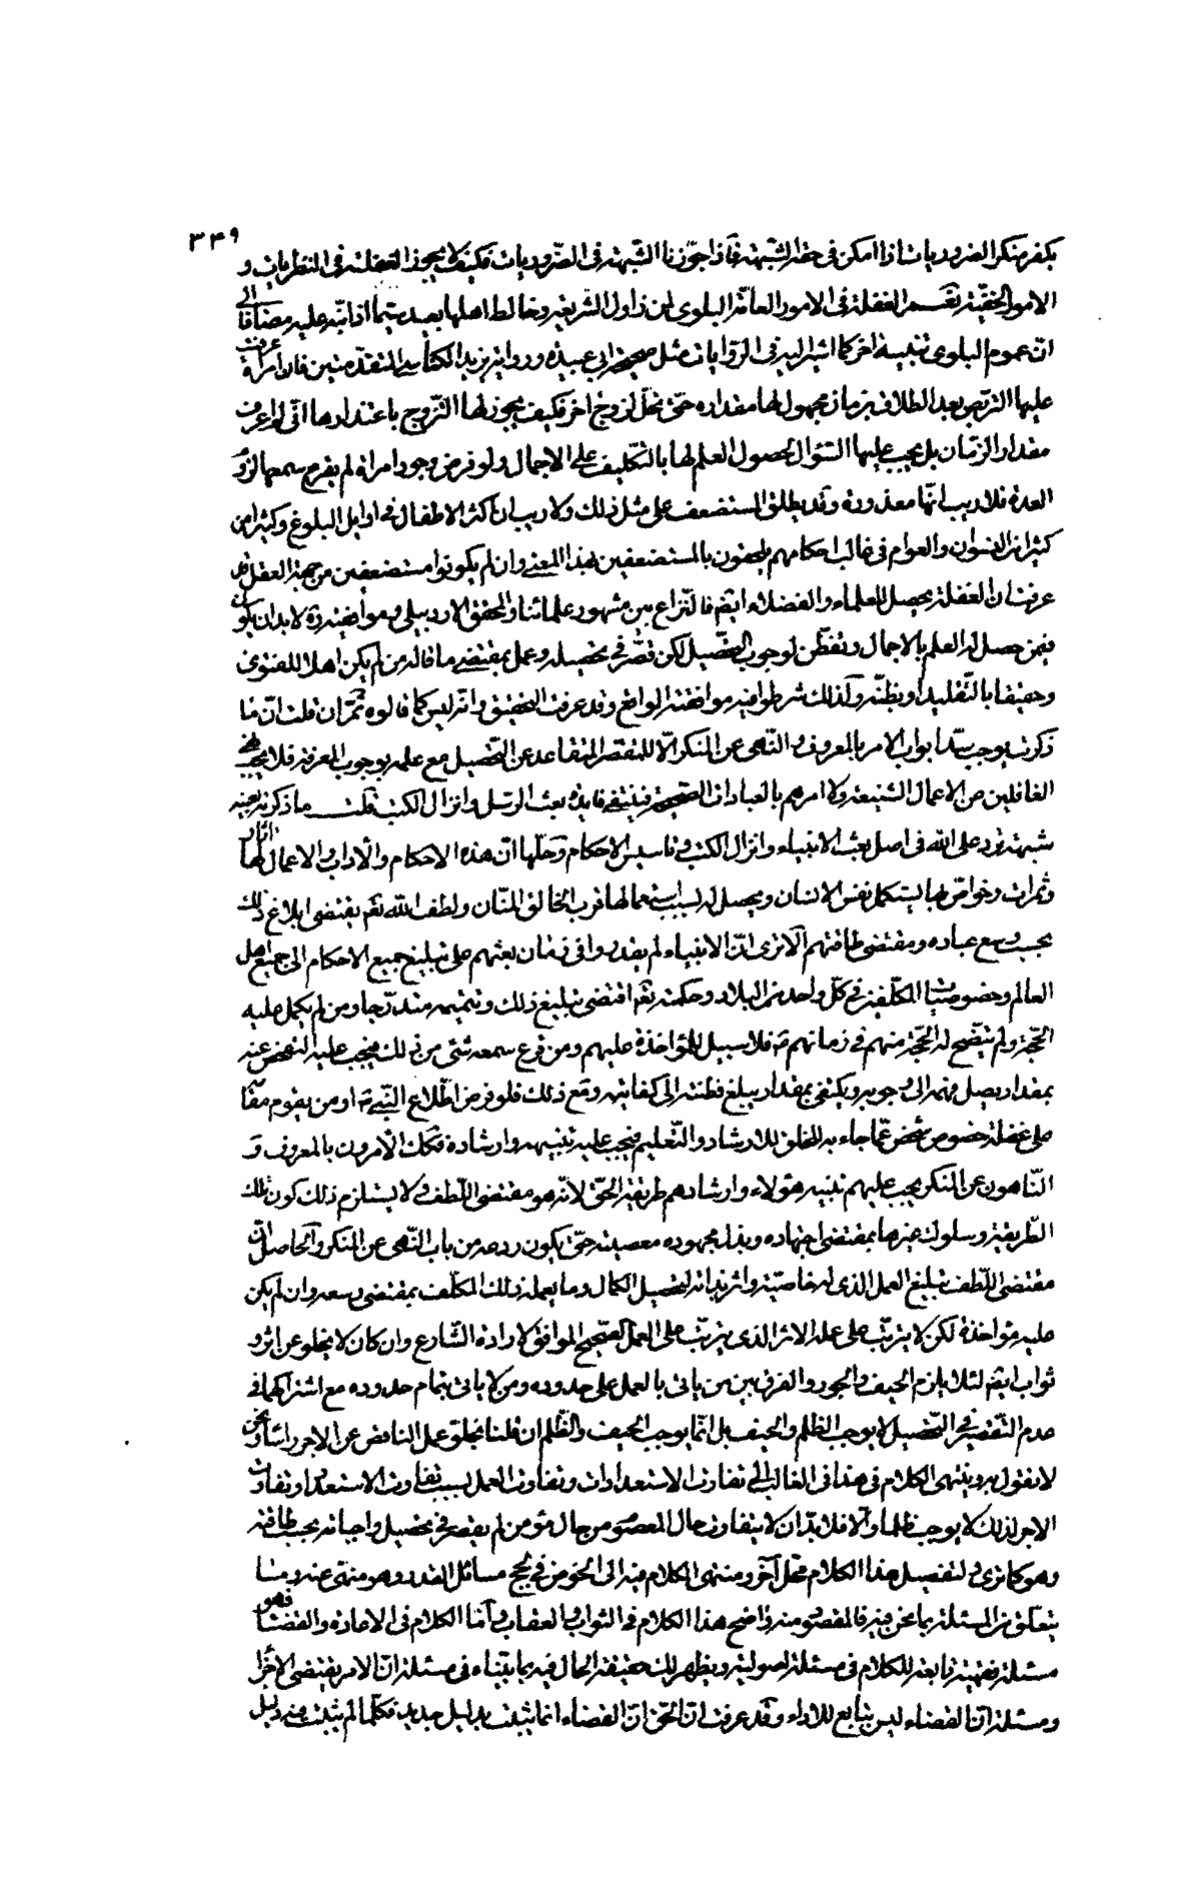 ٣٣٩
يكفر منكر الضروريات اذا امكن في حقه الشبهة فاذا جوّزنا الشبهة في الضروريات فكيف لا يجوز الغفلة في النظريات و
الامور الخفيّة نعم الغفلة في الامور العامّة البلوى لمن زاول الشريعة وخالط اهلها بعيد سيّما اذا نبّه عليه مضافا الى
ان عموم البلوى تنبيه اخر كما اشير اليه في الروايات مثل صحيحة ابي عبيدة ورواية يزيد الكناسي المتقدمتين فان امرأة عرفت
عليها التربص بعد الطلاق بزمان مجهول لها مقداره حتى تحل لزوج اخر فكيف يجوز لها التزوج باعتذارها انّي لم اعرف
مقدار الزمان بل يجب عليها السؤال لحصول العلم لها بالتكليف على الاجمال ولو فرض وجود امراة لم يقرع سمعها لزوم
العدة فلا ريب انّها معذورة وقد يطلق المستضعف على مثل ذلك ولا ريب ان اكثر الاطفال في اوايل البلوغ وكثيرا من
كثيرا من النسوان والعوام في غالب احكامهم يلحقون بالمستضعفين بهذا المعنى وان لم يكونوا مستضعفين من جهة العقل بل
عرفت ان الغفلة يحصل للعلماء والفضلاء ايضا فالنزاع بين مشهور علمائنا والمحقق الاردبيلي وموافقيه ره لا بد ان يكون
فيمن حصل له العلم بالاجمال وتفطّن لوجوب التحصيل لكن قصّر في تحصيله وعمل بمقتضى ما قاله من لم يكن اهلا للفتوى
وحقيقا بالتقليد او بظنّه ولذلك شرطوا فيه موافقته الواقع وقد عرفت التحقيق وانّه ليس كما قالوه ثمّ ان قلت انّ ما
ذكرت يوجب سدّ ابواب الامر بالمعروف والنهى عن المنكر الّا للمقصّر المتقاعد عن التحصيل مع علمه بوجوب المعرفة فلا يجب نهى
الغافلين عن الاعمال الشنيعة ولا امرهم بالعبادات الصحيحة فينتفى فايدة بعث الرسل وانزال الكتب قلت ما ذكرته بعينه
شبهة ترد على الله في اصل بعث الانبياء وانزال الكتب وتاسيس الاحكام وحلّها ان هذه الاحكام والآداب والاعمال لها آثار
وثمرات وخواصّ بها يستكمل نفس الانسان ويحصل له بسبب استعمالها قرب الخالق المنّان ولطف الله تعم يقتضى ابلاغ ذلك
بحسب وسع عباده ومقتضى طاقتهم الا ترى انّ الانبياء لم يقدروا في زمان بعثهم على تبليغ جميع الاحكام الى جميع اهل
العالم وخصوصيات المكلّفين في كلّ واحد من البلاد وحكمته تعم اقتضى تبليغ ذلك وتتميمه متدرّجا ومن لم يكمل عليه
الحجّة ولم يتّضح له الحجّة منهم في زمانهم فلا سبيل للمؤاخذة عليهم ومن قرع سمعه شئ من ذلك فيجب عليه الفحص عنه
بمقدار يصل فهمه الى وجوبه ويكتفى بمقدار يبلغ فطنته الى كفايته ومع ذلك فلو فرض اطّلاع النبي ص او من يقوم مقامه
على غفلة خصوص شخص عمّا جاء به للخلق للارشاد والتعليم فيجب عليه تنبيهه وارشاده فكك الآمرون بالمعروف و
الناهون عن المنكر يجب عليهم تنبيه هؤلاء وارشادهم طريقة الحقّ لانه هو مقتضى اللطف ولا يستلزم ذلك كون تلك
الطريقة وسلوك غيرها بمقتضى اجتهاده وبذل مجهوده معصية حتّى يكون ردعه من باب النهى عن المنكر والحاصل ان
مقتضى اللطف تبليغ العمل الذى له خاصيّة واثر يراد به لتحصيل الكمال وما يعمله ذلك المكلّف بمقتضى وسعه وان لم يكن
عليه مؤاخذة لكن لا يترتّب على عمله الاثر الذى يترتّب على العمل الصّحيح الموافق لارادة الشّارع وان كان لا يخلو عن اثر و
ثواب ايضا لئلا يلزم الحيف والجور والفرق بين من ياتى بالعمل على حدوده ومن لا ياتى بتمام حدوده مع اشتراكهما في
عدم التقصير في التحصيل لا يوجب الظلم والحيف بل انّما يوجب الحيف والظّلم ان قلنا بخلوّ عمل الناقص عن الاجر راسا ونحن
لا نقول به وينتهى الكلام في هذا في الغالب الى تفاوت الاستعدادات وتفاوت العمل بسبب تفاوت الاستعداد وتفاوت
الاجر لذلك لا يوجب ظلما والا فلا بدّ ان لا يتفاوت حال المعصوم من حال مؤمن لم يقصر في تحصيل واجباته بحسب طاقته
وهو كما ترى ولتفصيل هذا الكلام محل آخر ومنتهى الكلام فيه الى الخوض في لجج مسائل القدر وهو منهى عنه وما
يتعلّق من المسئلة بما نحن فيه فالمقصود منه واضح هذا الكلام في الثواب والعقاب وامّا الكلام في الاعادة والقضاء فهو
مسئلة فقهيّة تابعة للكلام في مسئلة اصوليّة ويظهر لك حقيقة الحال فيه بما بيّناه في مسئلة انّ الامر يقتضى الاجزاء
ومسئلة انّ القضاء ليس بتابع للاداء وقد عرفت انّ الحقّ انّ القضاء انما يثبت بدليل جديد فكلّما لم يثبت فيه دليل